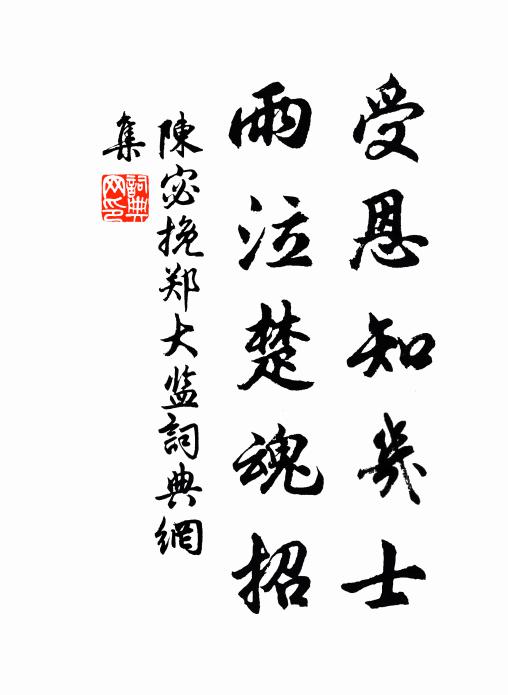 受恩知幾士
雨泣楚魂招
陳宓挽郑大监詞典網
集
詞典
网印